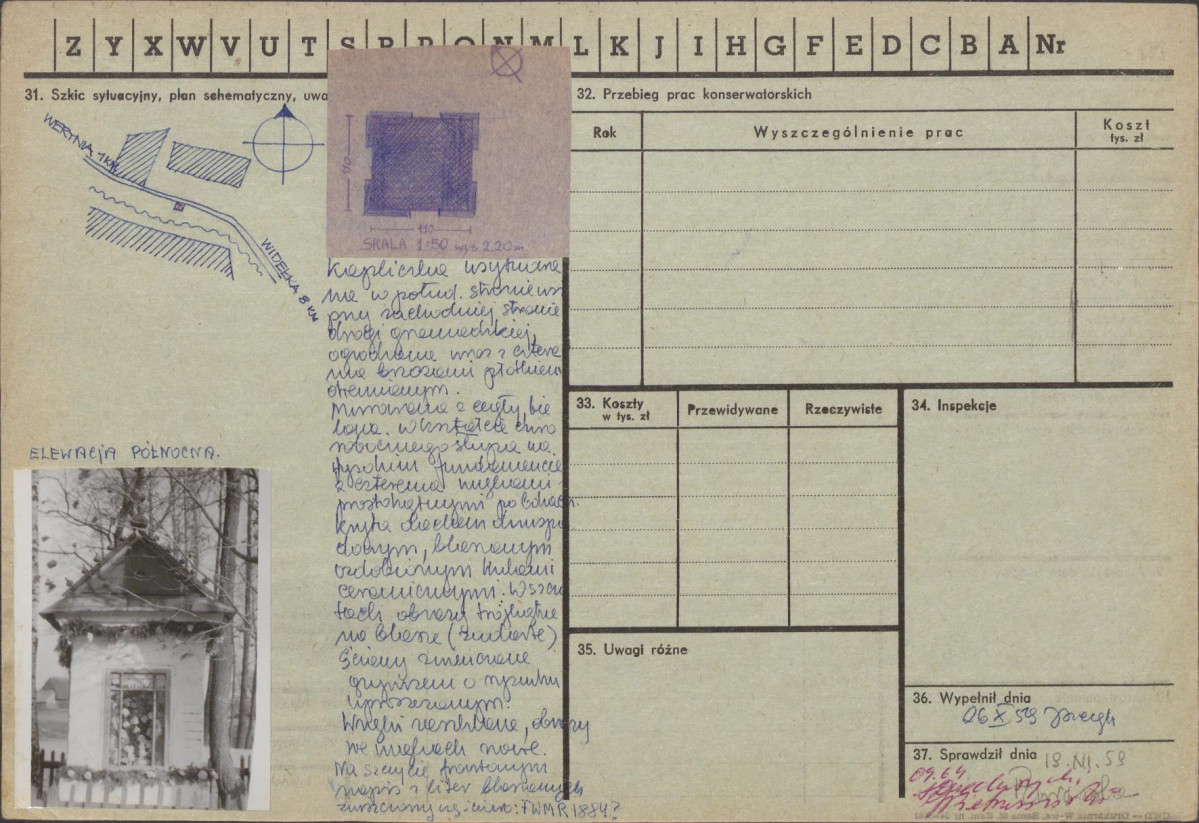 Z Y X W V U T S R P O N M L K J I H G F E D C B A Nr
31. Szkic sytuacyjny, plan schematyczny, uwa
WERYNIA 1KM
WIDEŁKA 8 KM
110
110
SKALA 1:50 wys 2.20m
Kapliczka usytuowa
na w połud. stronie wsi
przy zachodniej stronie
drogi gromadzkiej,
ogrodzona wraz z cztere
ma brzozami płotkiem
drewnianym.
Murowana z cegły, bie
lona. W kształcie czwo
robocznego słupa na
wysokim fundamencie
z czterema wnękami
prostokątnymi po bokach.
Kryta dachem dwuspa
dowym, blaszanym
ozdobionym kulami
ceramicznymi. W szczy
tach obrazy trójkątne
na blasze (zatarte)
Ściany zwieńczone
gzymsem o rysunku
uproszczonym.
Wnęki zaszklone, obrazy
we wnękach nowe.
Na szczycie frontowym
napis z liter blaszanych
zniszczony częściowo: FWMR 1884?
ELEWACJA PÓŁNOCNA.
32. Przebieg prac konserwatorskich
Rok
Wyszczególnienie prac
Koszt
tys. zł
33. Koszty
w tys. zł
Przewidywane
Rzeczywiste
34. Inspekcje
35. Uwagi różne
36. Wypełnił dnia
06 X 59
37. Sprawdził dnia 18.XI.59
09.64